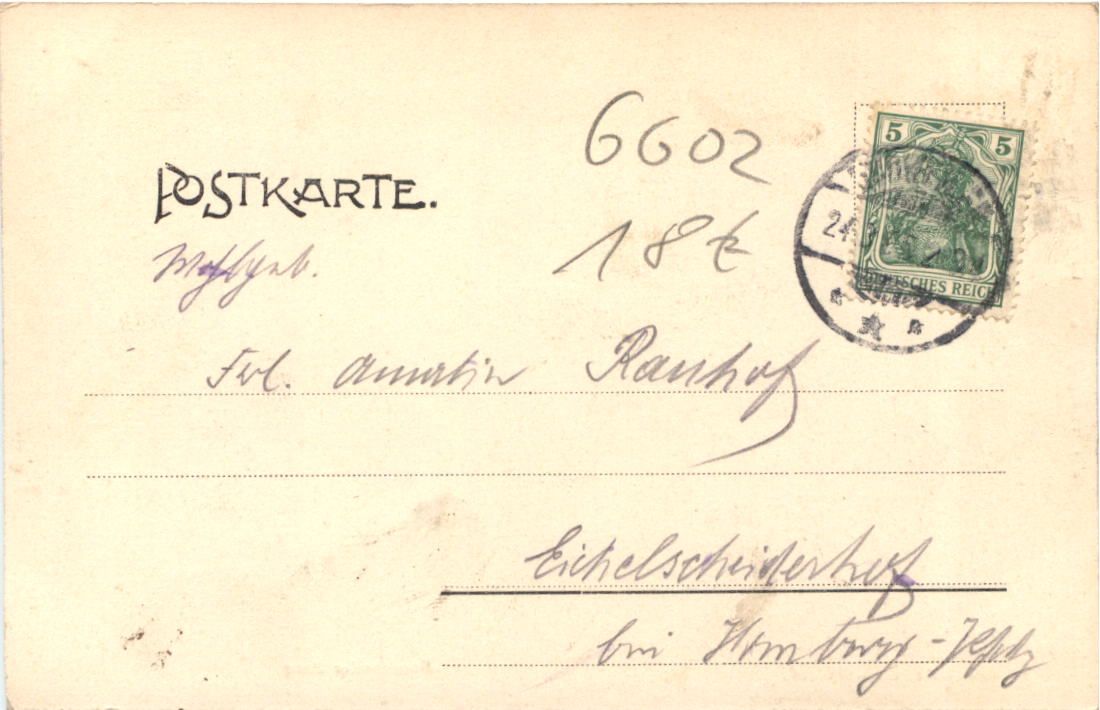 6602
POSTKARTE.
18
Wohlgeb.
5 5
24
DEUTSCHES REICH
Frl.
Eichelscheiderhof
bei Homburg-Pfalz